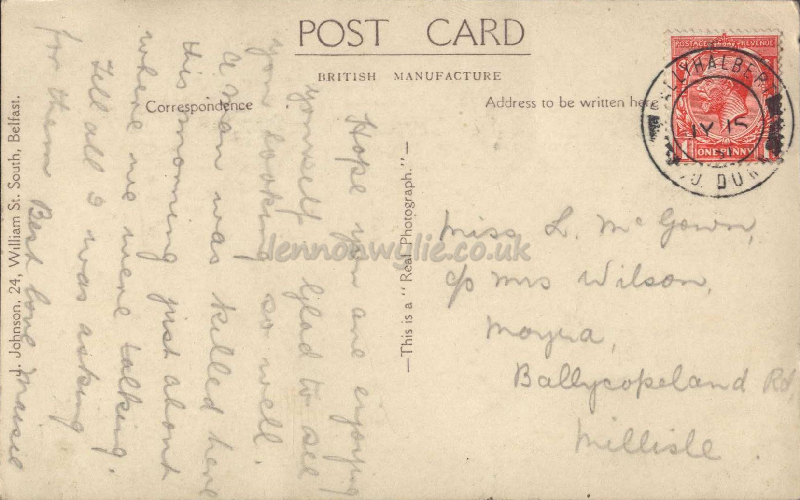 POST CARD
BRITISH MANUFACTURE
Correspondence
Address to be written here
POSTAGE REVENUE
ONE PENNY
BALLYHALBERT
JY 15
CO. DOWN
Hope you are enjoying
yourself glad to see
you looking so well.
a man was killed here
this morning just about
where we were talking.
Tell all I was asking
for them Best love Maisie
Miss L. McGown,
c/o Mrs Wilson,
Moyra,
Ballycopeland Rd,
Millisle
—This is a "Real Photograph."—
J. Johnson, 24, William St. South, Belfast.
lennonwylie.co.uk